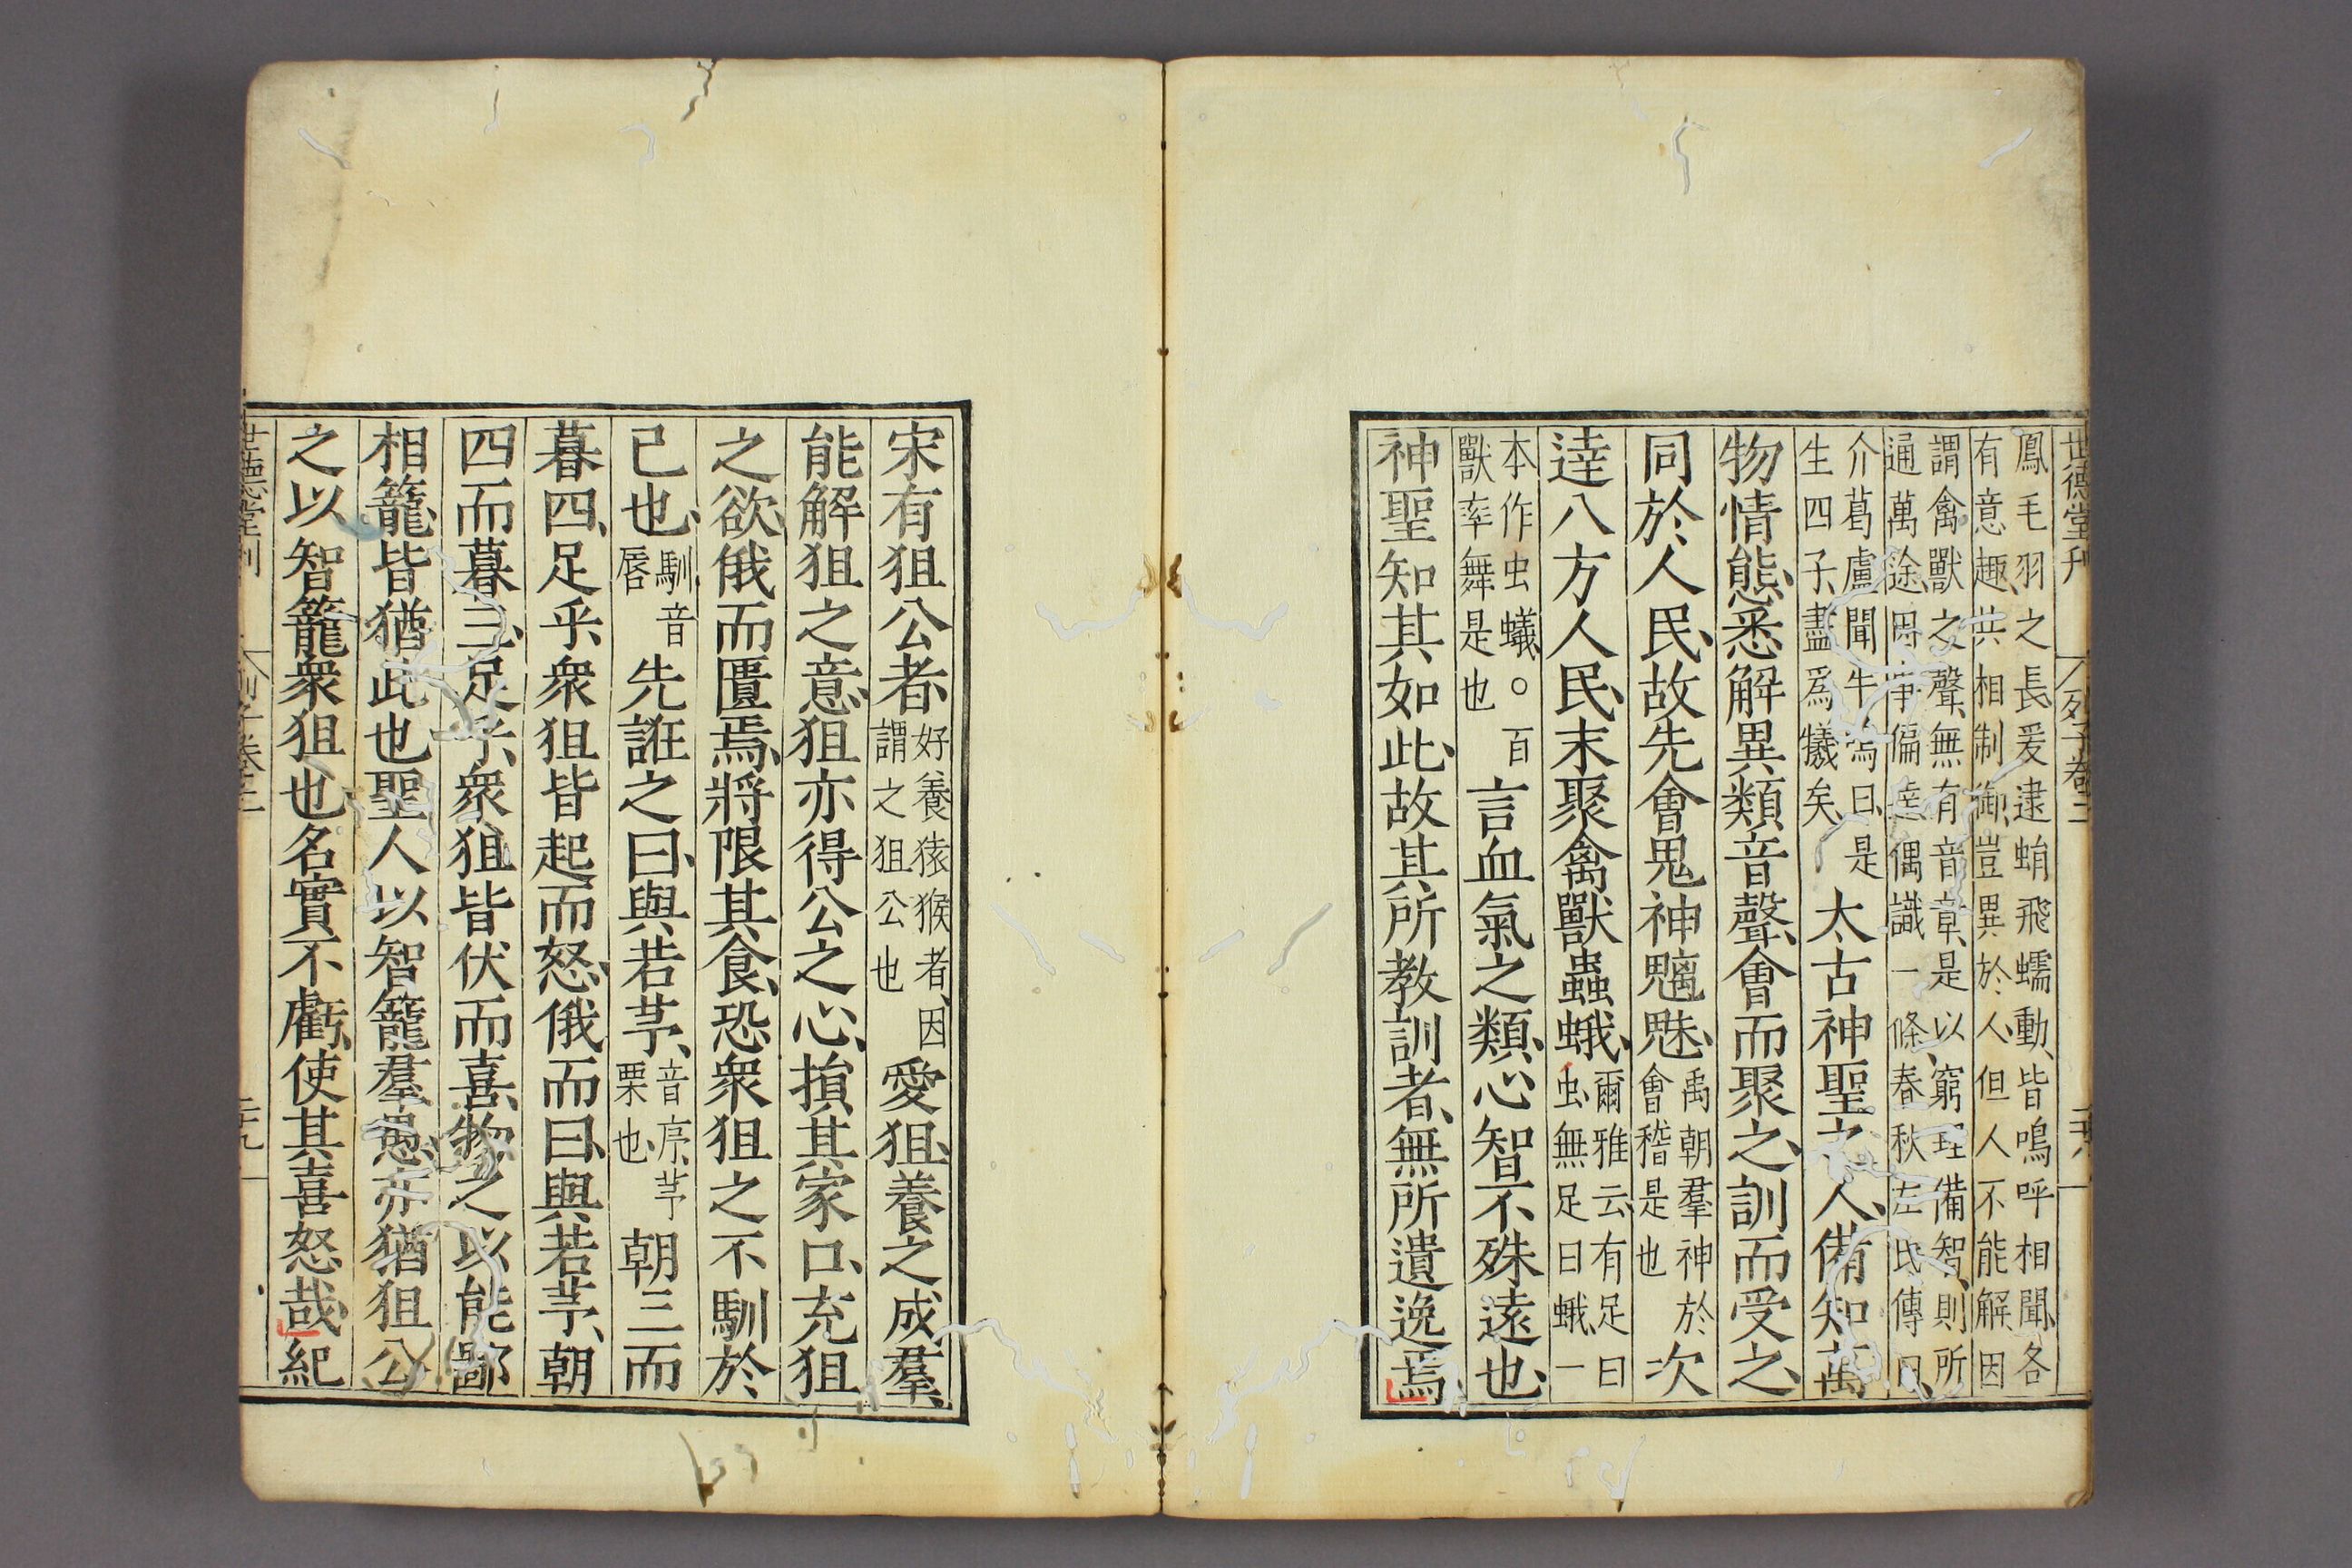 世德堂刊 列子卷二 二十八
鳳毛羽之長爰逮蛕飛蠕動皆鳴呼相聞各
有意趣共相制御豈異於人但人不能解因
謂禽獸之聲無有音章是以窮理備智則所
通萬途因事偏達偶識一條春秋左氏傳曰
介葛盧聞牛鳴曰是
生四子盡爲犧矣
太古神聖之人備知萬
物情態悉解異類音聲會而聚之訓而受之
同於人民故先會鬼神魑魅
禹朝羣神於
會稽是也
次
達八方人民末聚禽獸蟲蛾
爾雅云有足曰
虫無足曰蛾一
本作虫蟻○百
獸率舞是也
言血氣之類心智不殊遠也
神聖知其如此故其所教訓者無所遺逸焉
宋有狙公者
好養猿猴者因
謂之狙公也
愛狙養之成羣
能解狙之意狙亦得公之心損其家口充狙
之欲俄而匱焉將限其食恐衆狙之不馴於
已也
馴音
唇
先誑之曰與若芧
音序芧
栗也
朝三而
暮四足乎衆狙皆起而怒俄而曰與若芧朝
四而暮三足乎衆狙皆伏而喜物之以能鄙
相籠皆猶此也聖人以智籠羣愚亦猶狙公
之以智籠衆狙也名實不虧使其喜怒哉紀
世德堂刊 卷二 二十九